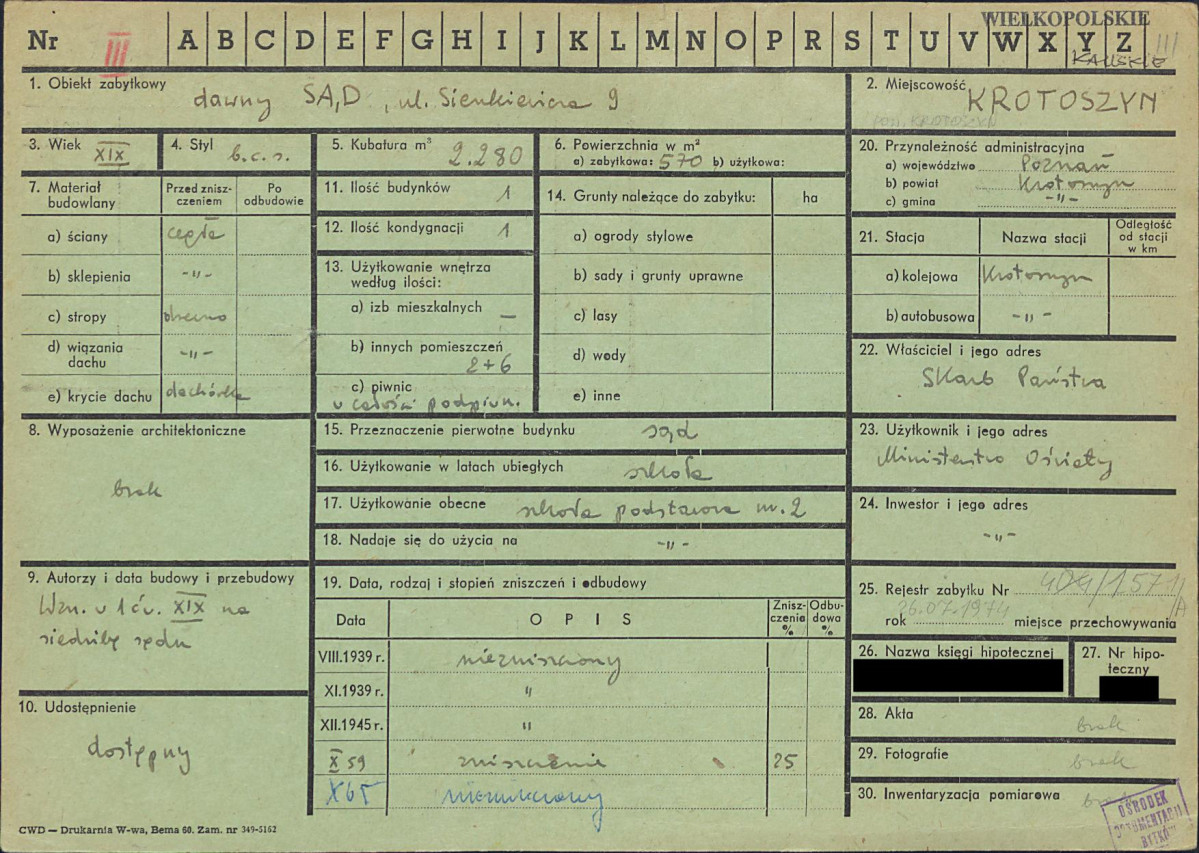 WIELKOPOLSKIE
Nr III A B C D E F G H I J K L M N O P R S T U V W X Y Z III
KALISKIE
1. Obiekt zabytkowy
dawny SĄD, ul. Sienkiewicza 9
2. Miejscowość
KROTOSZYN
KROTOSZYN
3. Wiek XIX
4. Styl b.c.s.
5. Kubatura m³ 2.280
6. Powierzchnia w m²
a) zabytkowa: 570 b) użytkowa:
7. Materiał budowlany
Przed zniszczeniem
Po odbudowie
a) ściany cegła
b) sklepienia -"-
c) stropy drewno
d) wiązania dachu -"-
e) krycie dachu dachówka
11. Ilość budynków 1
12. Ilość kondygnacji 1
13. Użytkowanie wnętrza według ilości:
a) izb mieszkalnych —
b) innych pomieszczeń
2+6
c) piwnic
w całości podpiwn.
14. Grunty należące do zabytku: ha
a) ogrody stylowe
b) sady i grunty uprawne
c) lasy
d) wody
e) inne
20. Przynależność administracyjna
a) województwo Poznań
b) powiat Krotoszyn
c) gmina -"-
21. Stacja
Nazwa stacji
Odległość od stacji w km
a) kolejowa Krotoszyn
b) autobusowa -"-
22. Właściciel i jego adres
Skarb Państwa
8. Wyposażenie architektoniczne
brak
15. Przeznaczenie pierwotne budynku sąd
16. Użytkowanie w latach ubiegłych szkoła
17. Użytkowanie obecne szkoła podstawowa nr. 2
18. Nadaje się do użycia na -"-
23. Użytkownik i jego adres
Ministerstwo Oświaty
24. Inwestor i jego adres
-"-
9. Autorzy i data budowy i przebudowy
Wzn. w 1 ćw. XIX na
siedzibę sądu
19. Data, rodzaj i stopień zniszczeń i odbudowy
Data
OPIS
Zniszczenia %
Odbudowa %
VIII.1939 r. niezniszczony
XI.1939 r. "
XII.1945 r. "
X 59 zniszczenie 25
X 65 niezniszczony
25. Rejestr zabytku Nr 404/1571/A
26.07.1974
rok miejsce przechowywania
26. Nazwa księgi hipotecznej
27. Nr hipoteczny
10. Udostępnienie
dostępny
28. Akta brak
29. Fotografie brak
30. Inwentaryzacja pomiarowa
OŚRODEK
DOKUMENTACJI
CWD — Drukarnia W-wa, Bema 60. Zam. nr 349-5162